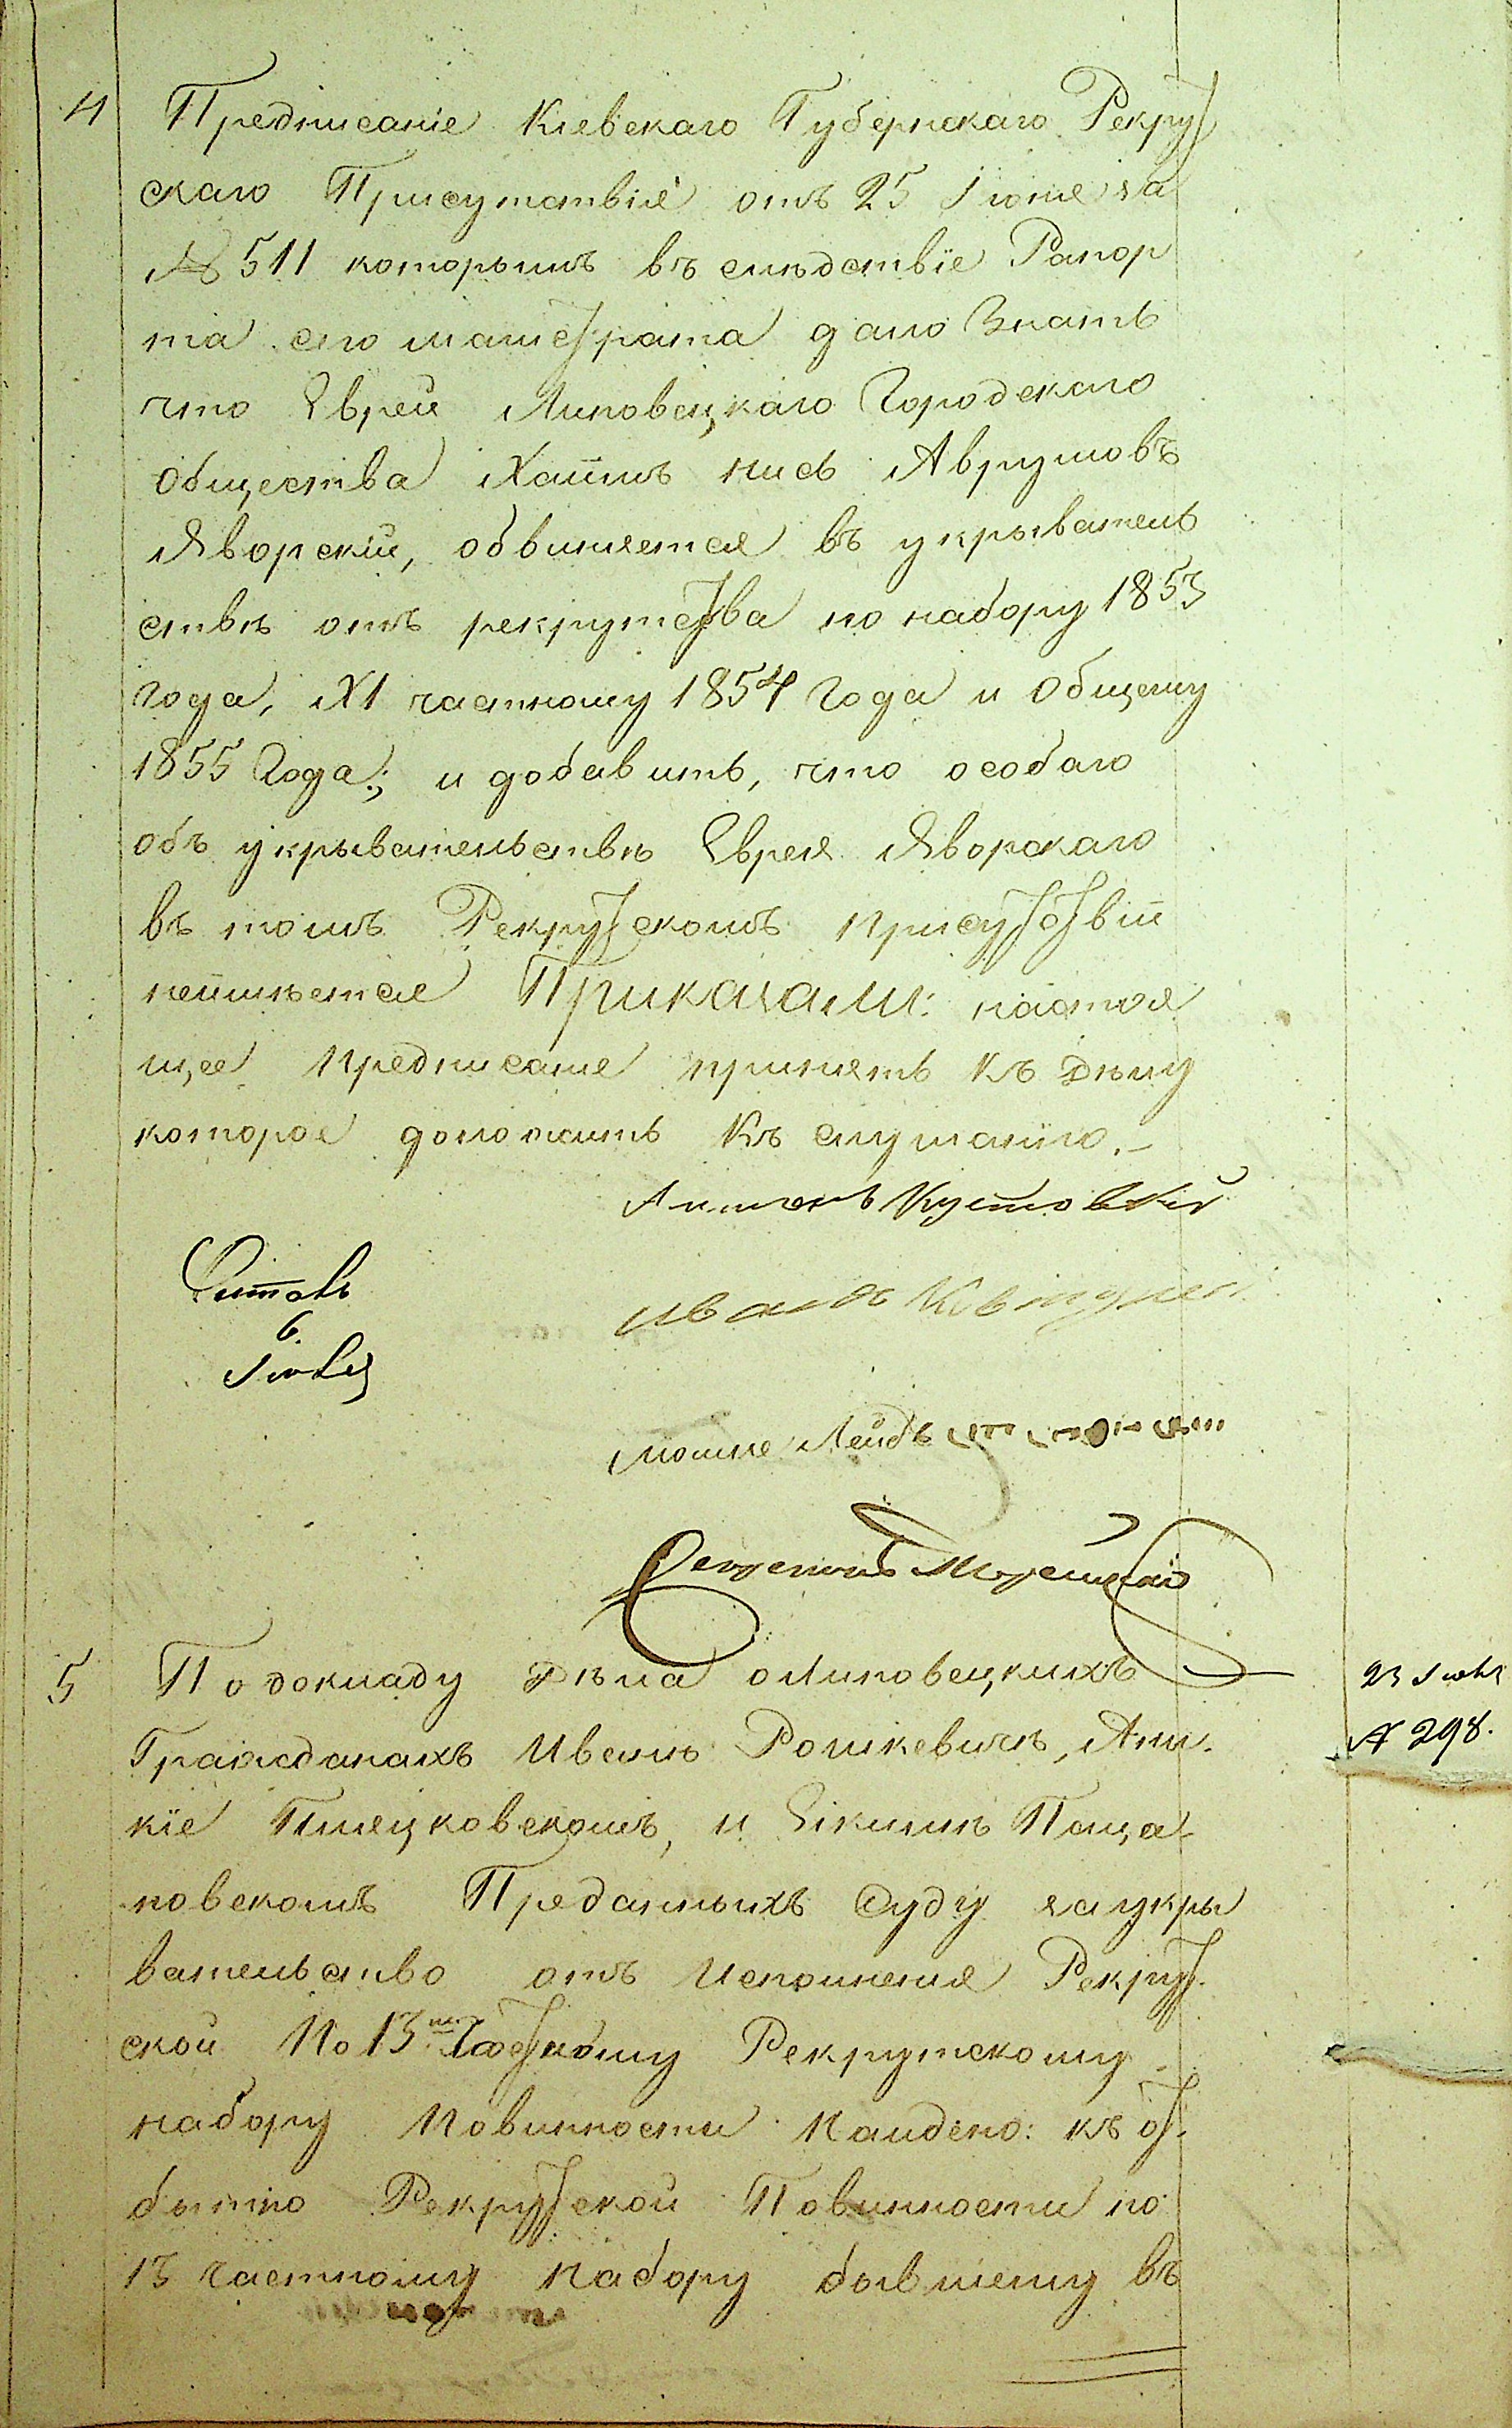 4 Предписаніе Кіевскаго Губернскаго Рекрут
скаго Присутствія отъ 25 Іюня за
№ 511 которымъ въ слѣдствіе Рапор
та сего магистрата дано Знать
что Еврей Липовецкаго Городскаго
Общества Хаимъ нисъ Аврумовъ
Яворскій, обвиняется въ укрыватель
ствѣ отъ рекрутства по набору 1853
года, XI частному 1854 Года и Общему
1855 Года; и добавить, что особаго
объ укрывательствѣ Еврея Яворскаго
въ томъ Рекрутскомъ присутствіи
неимѣется Приказали: настоя
щее предписаніе принять къ дѣлу
которое доложить Къ слушанію.-
Иванъ
6.
Мошко Лейбъ
5 По докладу дѣла о Липовецкихъ
Гражданахъ Иванѣ Рошкевичѣ, Ани-
кіе, и Екимѣ Паца-
новскомъ Преданныхъ Суду за укры
вательство отъ Исполненія Рекрут-
ской По 13му Частному Рекрутскому
набору Повинности Найдено: къ от-
бытію Рекрутской Повинности по
13 частному набору бывшему въ
23 Іюля
№ 298.